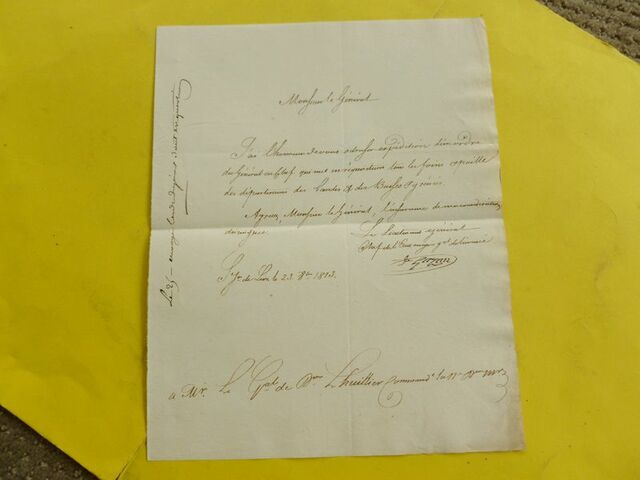 Monsieur le Général
J'ai l'honneur de vous adresser expédition d'un ordre
du Général en Chef qui met en réquisition tous les foins et paille
des départemens des Landes & des Basses Pyrénées
Agréez, Monsieur le Général, l'assurance de ma considération
distinguée
Le Lieutenant Général
Chef de l'État major gal de l'armée
St Jn de Luz le 23 8bre 1813.
a Mr. Le Gal de Don Lhuillier Commandt la 11e Don Mre